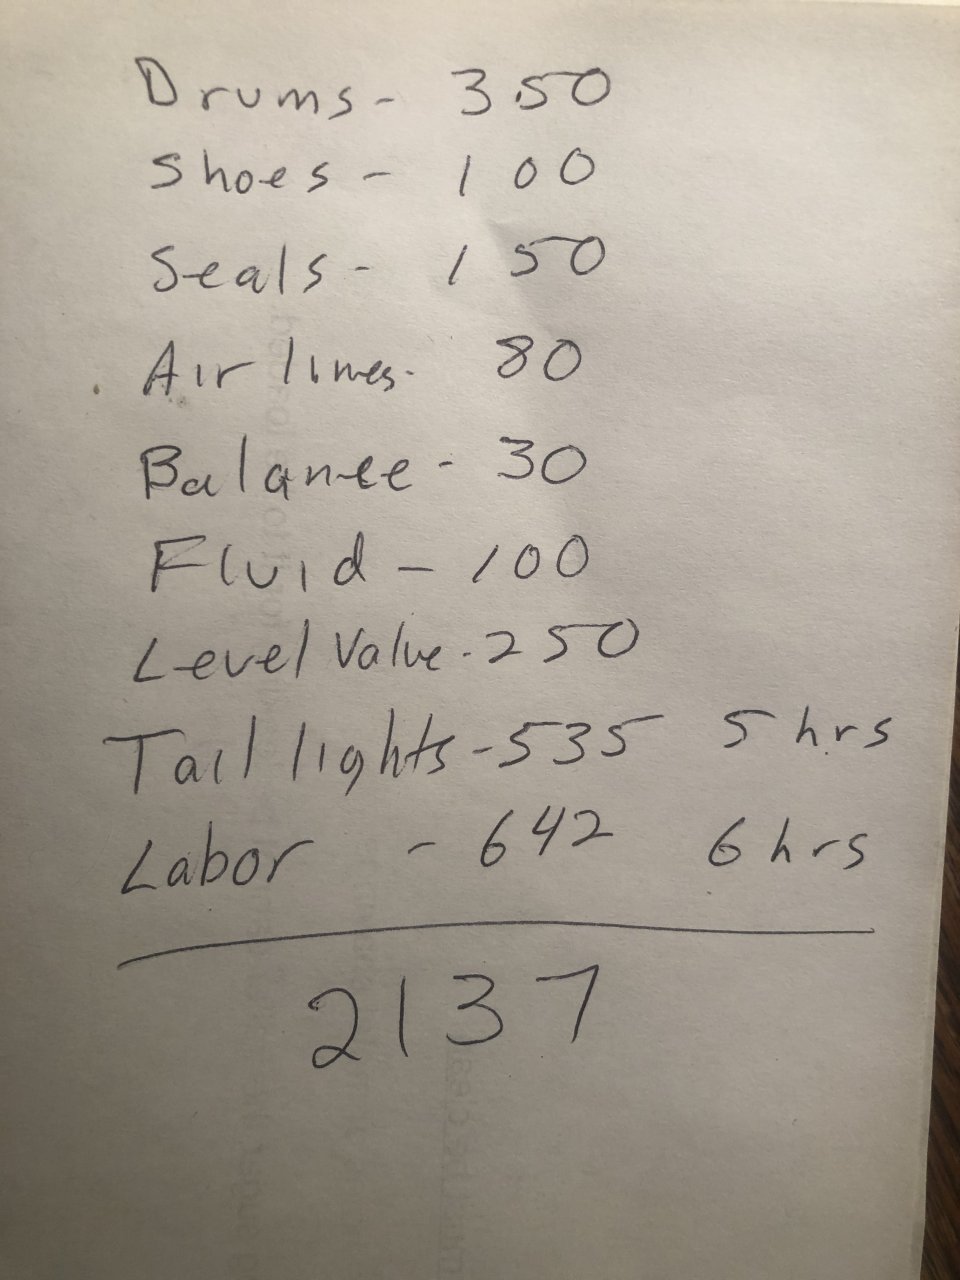 Drums - 350
Shoes - 100
Seals - 150
Air lines - 80
Balance - 30
Fluid - 100
Level Valve - 250
Tail lights - 535 5 hrs
Labor - 642 6 hrs
2137